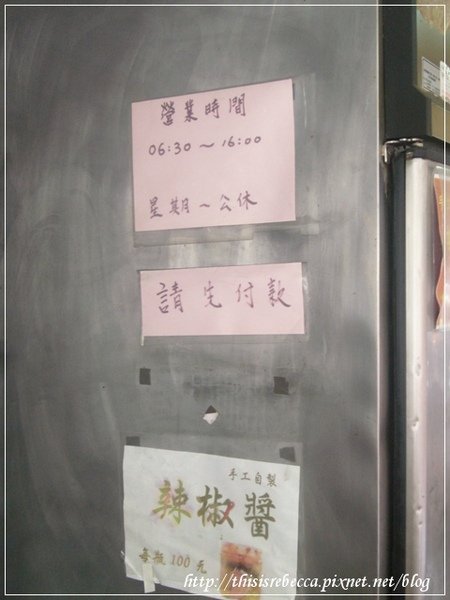 營業時間
06:30～16:00
星期一公休
請先付款
手工自製
辣椒醬
每瓶100元
http://thisisrebecca.pixnet.net/blog